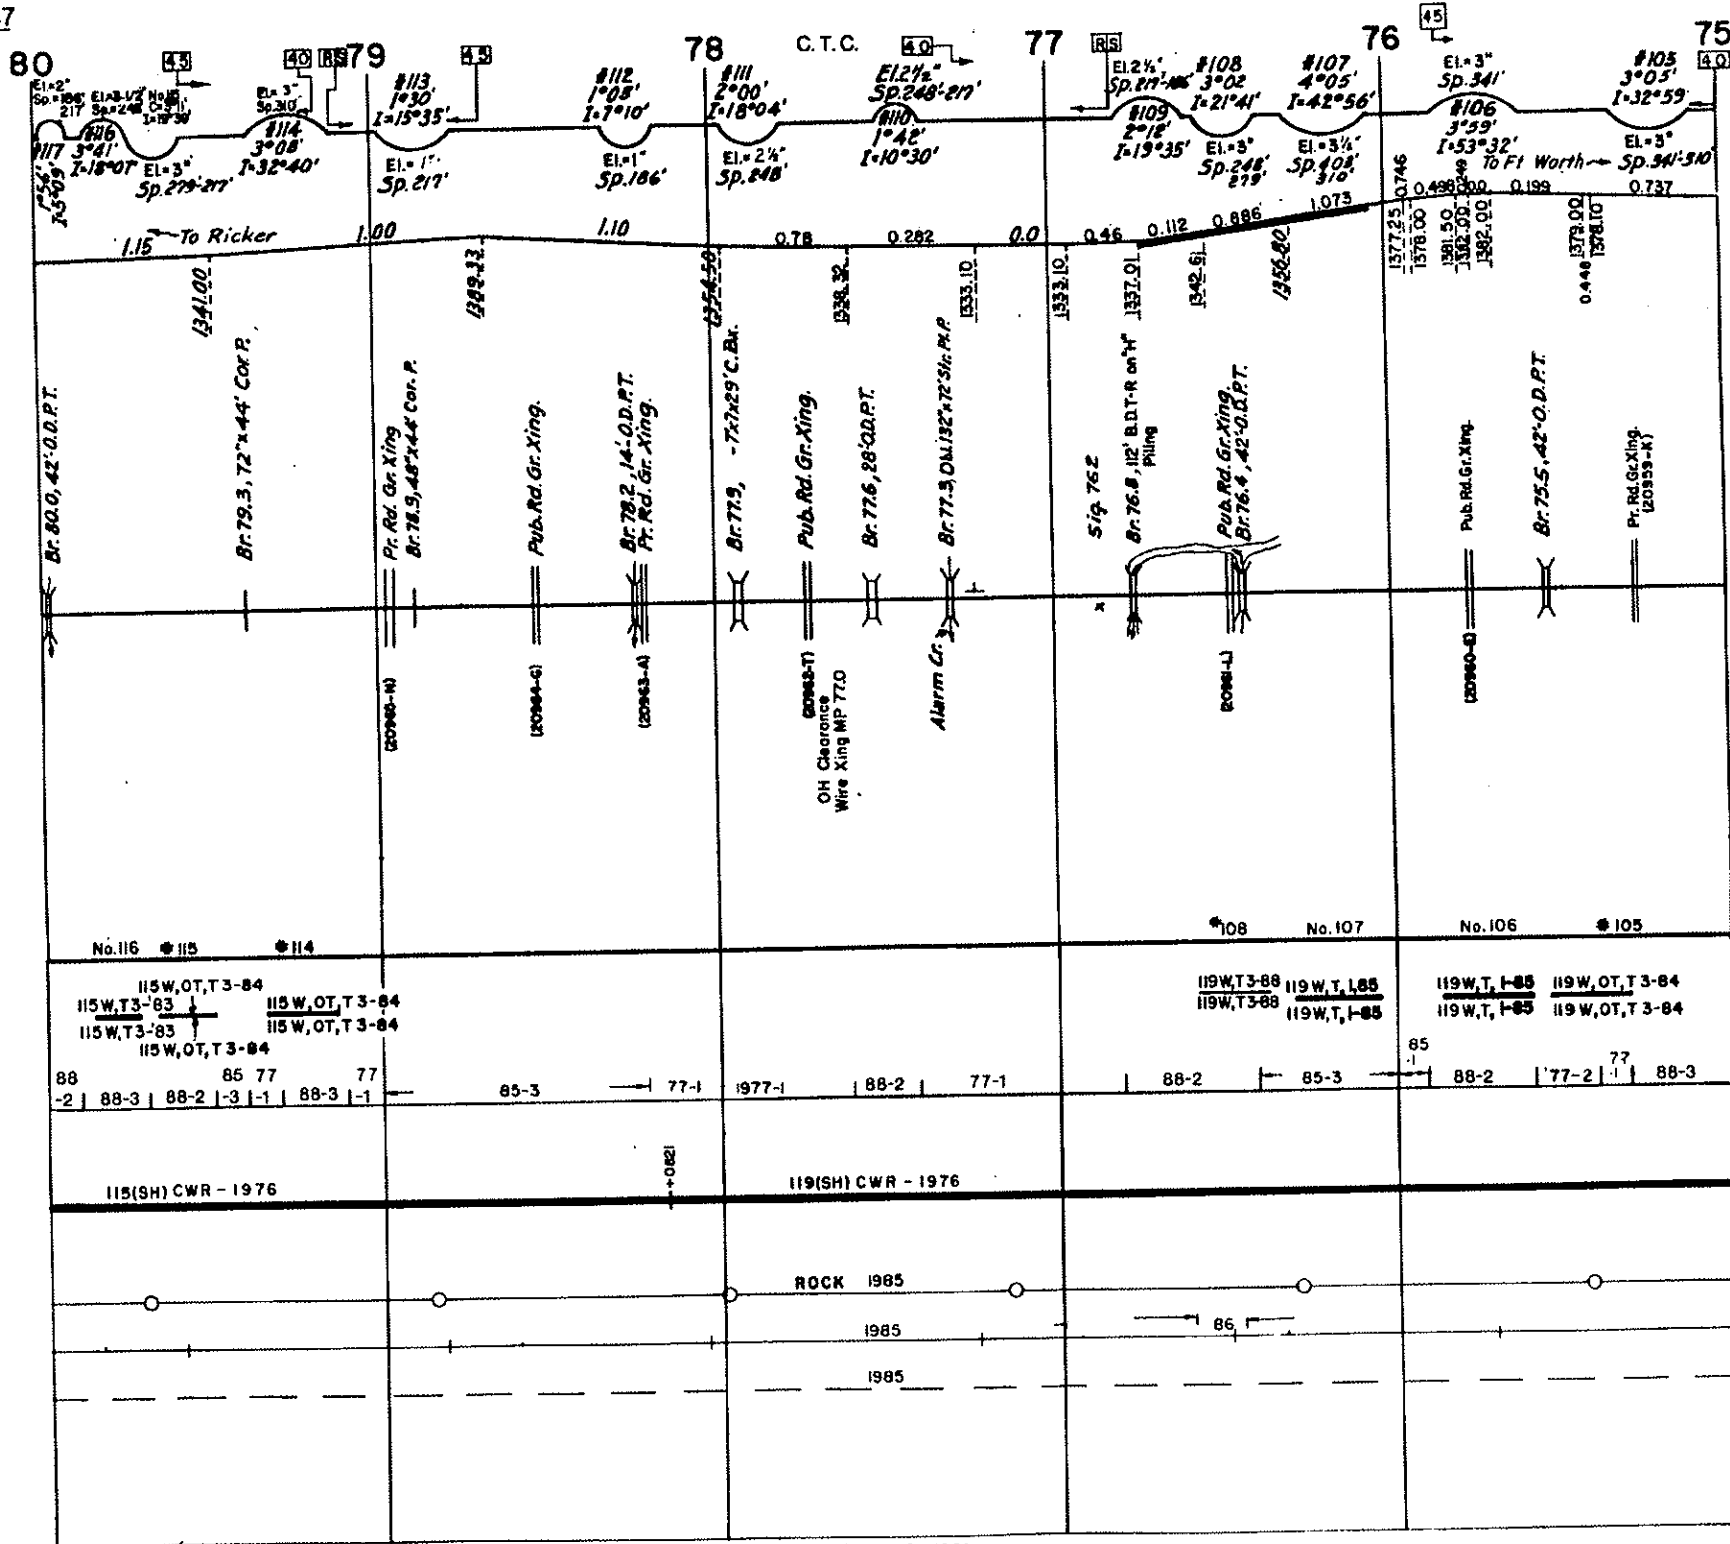 80
79
78
C. T. C.
77
76
75
45
40
RS
45
40
RS
45
40
El.=2"
Sp.=186'
217'
#117
1°56'
I=5°09'
El.=3-1/2"
Sp.=248'
#116
3°41'
I=18°07'
No.115
I=19°30'
El.=3"
Sp.279'-217'
El.= 3"
Sp.310'
#114
3°08'
I=32°40'
#113
1°30'
I=15°35'
El.= 1"
Sp.217'
#112
1°08'
I=7°10'
El.=1"
Sp.186'
#111
2°00'
I=18°04'
El.=2½"
Sp.248'
El.2½"
Sp.248'-217'
#110
1°42'
I=10°30'
El.2½"
Sp.217'-186'
#109
2°12'
I=19°35'
#108
3°02
I=21°41'
El.=3"
Sp.248'
279'
#107
4°05'
I=42°56'
El.=3½"
Sp.408'
310'
El.=3"
Sp.341'
#106
3°59'
I=53°32'
#105
3°05'
I=32°59'
El.=3"
Sp.341'-310'
To Ft Worth
To Ricker
1.15
1.00
1.10
0.78
0.282
0.0
0.46
0.112
0.886
1.073
0.746
0.498
0.0
.249
0.199
0.737
0.448
1341.00
1389.33
1354.50
1338.32
1333.10
1333.10
1337.01
1342.61
1356.80
1377.25
1378.00
1381.50
1382.00
1382.00
1379.00
1378.10
Br. 80.0, 42'-O.D.P.T.
Br.79.3, 72"x44' Cor. P.
Pr. Rd. Gr. Xing
Br.78.9, 48"x44' Cor. P.
Pub. Rd. Gr. Xing.
Br.78.2, 14'-O.D.P.T.
Pr. Rd. Gr. Xing.
Br.77.9, -7x7x29' C.Bx.
Pub. Rd. Gr. Xing.
Br.77.6, 28'-O.D.P.T.
Br.77.3, Dbl.132"x72' Str. Pl.P.
Sig. 762
Br.76.8, 112' B.D.T-R on "H"
Piling
Pub. Rd. Gr. Xing.
Br.76.4, 42'-O.D.P.T.
Pub. Rd. Gr. Xing.
Br.75.5, 42'-O.D.P.T.
Pr. Rd. Gr. Xing.
(20959-K)
(20964-G)
(20963-A)
(20962-T)
OH Clearance
Wire Xing MP 77.0
Alarm Cr.
(20961-L)
(20960-E)
No.116
#115
#114
#108
No.107
No.106
#105
115W,OT,T3-84
115W,T3-'83
115W,OT,T3-84
115W,T3-'83
115W,OT,T3-84
115W,OT,T3-84
119W,T3-88
119W,T,1-85
119W,T,1-85
119W,OT,T3-84
119W,T3-88
119W,T,1-85
119W,T,1-85
119W,OT,T3-84
88
-2
88-3
88-2
85
-3
77
-1
88-3
77
-1
85-3
77-1
1977-1
88-2
77-1
88-2
85-3
85
-1
88-2
'77-2
77
-1
88-3
115(SH) CWR - 1976
+0821
119(SH) CWR - 1976
ROCK 1985
1985
86
1985